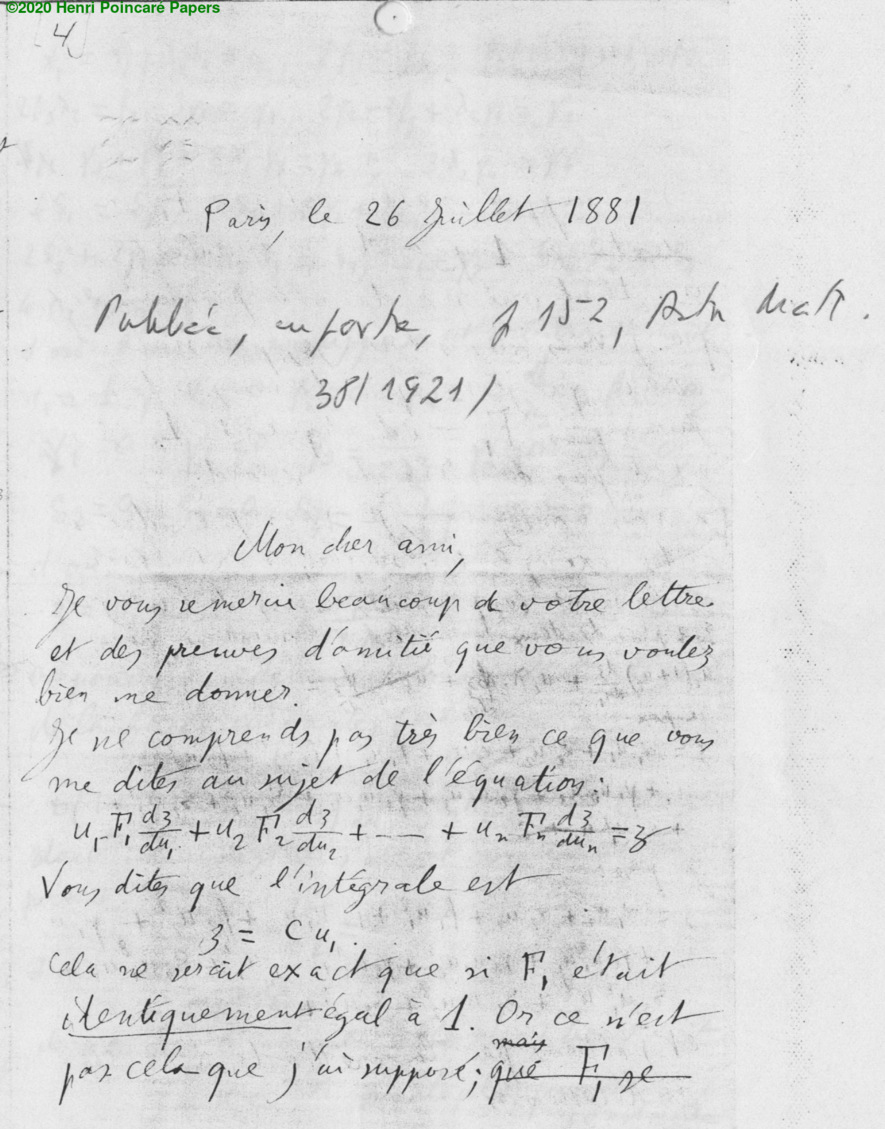 ©2020 Henri Poincaré Papers
[4]
Paris, le 26 Juillet 1881
Publiée, en partie, p 152, Acta Math.
38 (1921)
Mon cher ami,
Je vous remercie beaucoup de votre lettre
et des preuves d'amitié que vous voulez
bien me donner.
Je ne comprends pas très bien ce que vous
me dites au sujet de l'équation:
u₁ F₁ dz/du₁ + u₂ F₂ dz/du₂ + --- + uₙ Fₙ dz/duₙ = z
Vous dites que l'intégrale est
z = Cu₁.
Cela ne serait exact que si F₁ était
identiquement égal à 1. Or ce n'est
mais
pas cela que j'ai supposé; que F₁ se